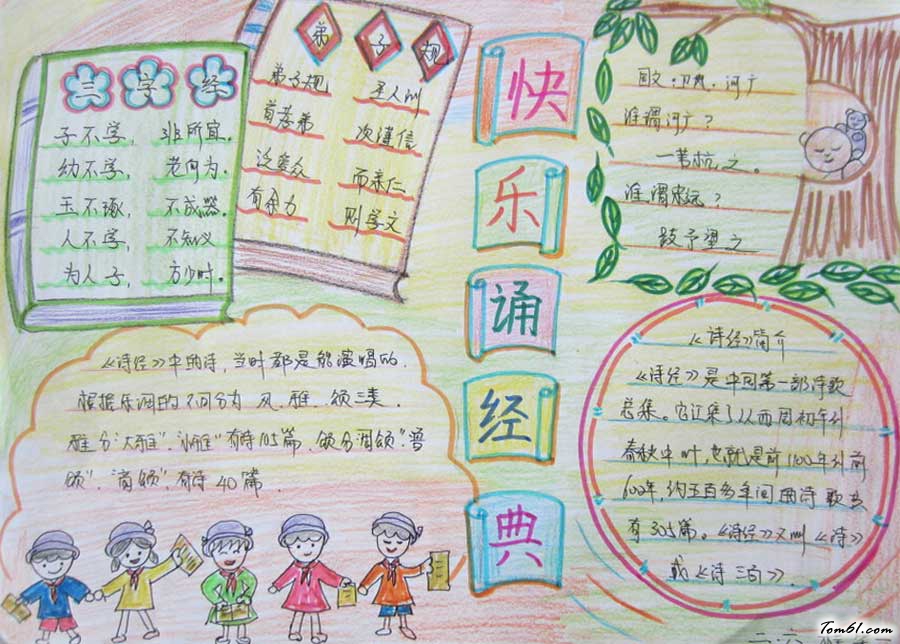 三字经
子不学，非所宜。
幼不学，老何为。
玉不琢，不成器。
人不学，不知义
为人子，方少时。
弟子规
弟子规 圣人训
首孝弟 次谨信
泛爱众 而亲仁
有余力 则学文
快乐诵经典
国风·卫风·河广
谁谓河广？
一苇杭之。
谁谓宋远？
跂予望之
《诗经》中的诗，当时都是能演唱的.
根据乐调的不同分为 风、雅、颂三类.
雅分“大雅”“小雅”有诗105篇.颂分“周颂”“鲁
颂”、“商颂”，有诗40篇.
《诗经》简介
《诗经》是中国第一部诗歌
总集。它汇集了从西周初年到
春秋中叶，也就是前1100年到前
600年，约五百多年间的诗歌共
有305篇。《诗经》又叫《诗》
或《诗三百》.
Tom61.com